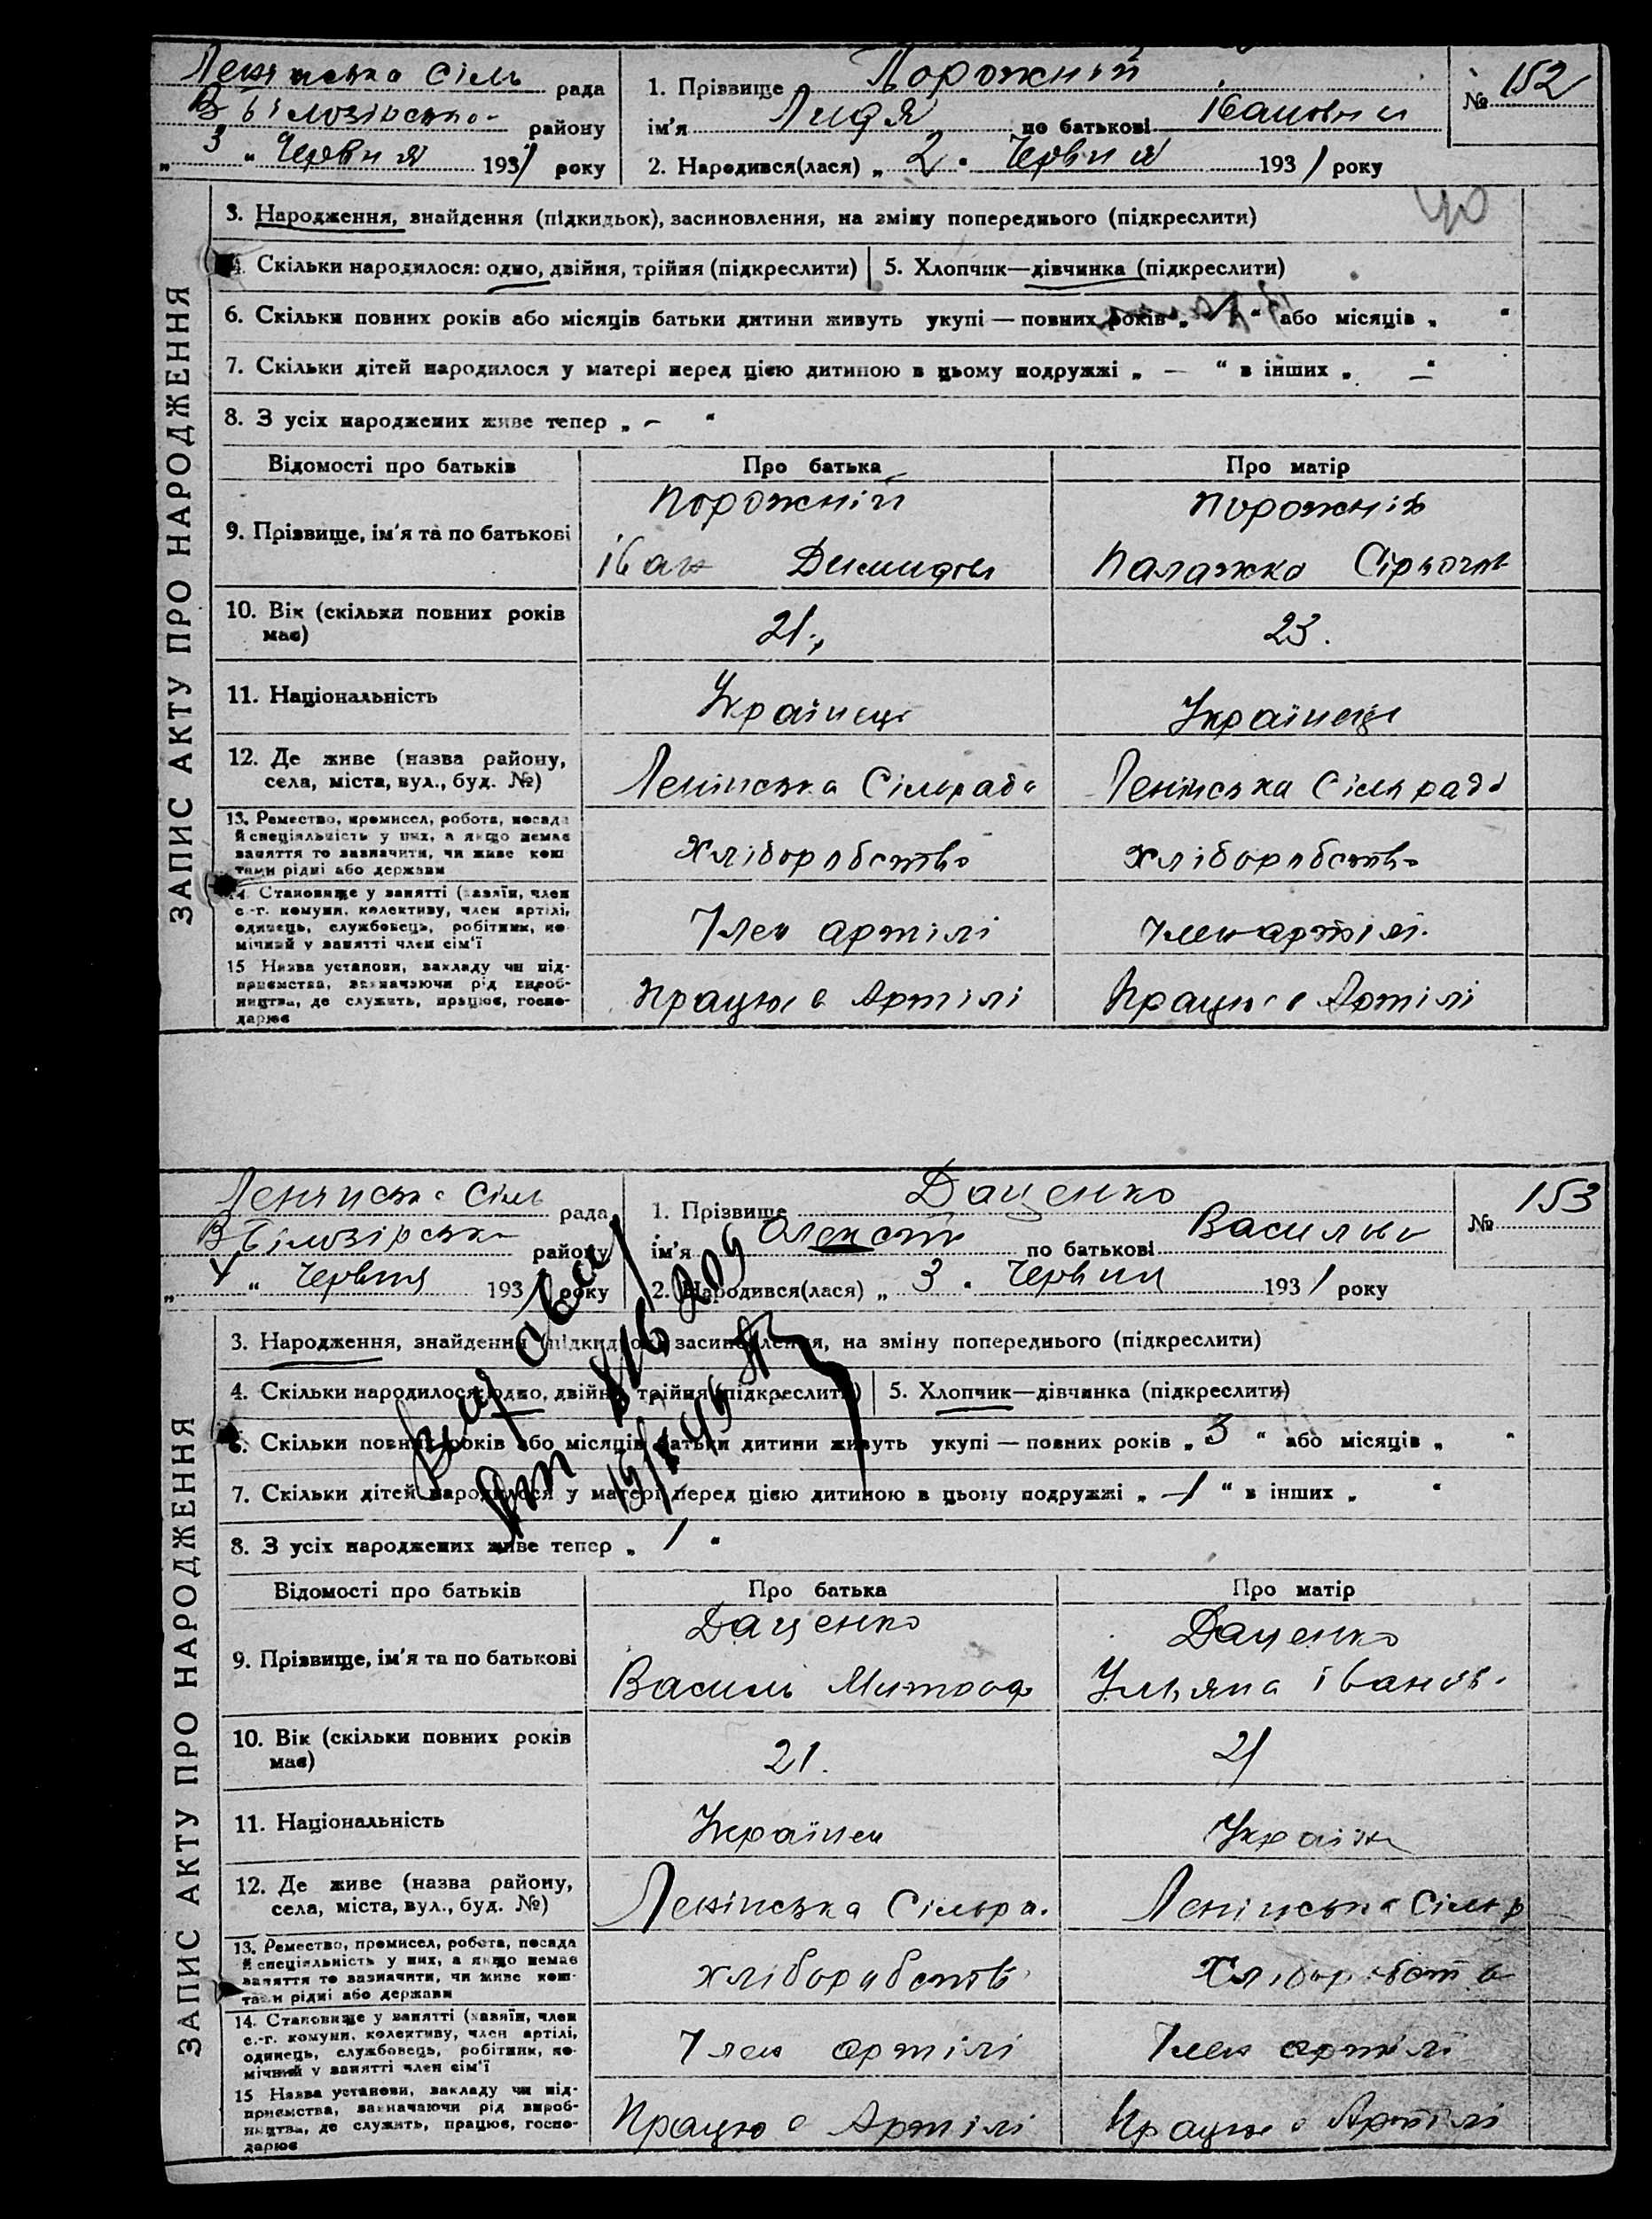 Ленінська Сіль рада
В Білозірсько району
„ 3 “ Червня 1931 року
1. Прізвище Порожній
ім'я Лидя по батькові Івановни
2. Народився(лася) „ 2 “ Червня 1931 року
№ 152
ЗАПИС АКТУ ПРО НАРОДЖЕННЯ
3. Народження, знайдення (підкидьок), засиновлення, на зміну попереднього (підкреслити)
4. Скільки народилося: одно, двійня, трійня (підкреслити) 5. Хлопчик—дівчинка (підкреслити)
6. Скільки повних років або місяців батьки дитини живуть укупі — повних років „ “ або місяців „ “
7. Скільки дітей народилося у матері перед цією дитиною в цьому подружжі „ — “ в інших „ — “
8. З усіх народжених живе тепер „ – “
Відомості про батьків Про батька Про матір
9. Прізвище, ім'я та по батькові
Порожній Порожній
Іван Демидов Палажка
10. Вік (скільки повних років має) 21. 23.
11. Національність Українець Українець
12. Де живе (назва району, села, міста, вул., буд. №) Ленінська Сільрада Ленінська Сільрада
13. Ремество, промисел, робота, посада
й спеціяльність у них, а якщо немає
заняття то зазначити, чи живе кош
тами рідні або держави
Хліборобство Хліборобство
14. Становище у занятті (хазяїн, член
с.-г. комуни, колективу, член артілі,
одинець, службовець, робітник, по-
мічний у занятті член сім'ї
Член артілі Член артілі.
15 Назва установи, закладу чи під-
приємства, зазначаючи рід вироб-
ництва, де служить, працює, госпо-
дарює
Працює в Артілі Працює в Артілі
Ленінська Сіль рада
В Білозірська району
„ 4 “ Червня 1931 року
1. Прізвище Даценко
ім'я по батькові Васильов
2. Народився(лася) „ 3 “ Червня 1931 року
№ 153
ЗАПИС АКТУ ПРО НАРОДЖЕННЯ
3. Народження, знайдення (підкидьок), засиновлення, на зміну попереднього (підкреслити)
4. Скільки народилося: одно, двійня, трійня (підкреслити) 5. Хлопчик—дівчинка (підкреслити)
6. Скільки повних років або місяців батьки дитини живуть укупі — повних років „ 3 “ або місяців „ “
7. Скільки дітей народилося у матері перед цією дитиною в цьому подружжі „ 1 “ в інших „ “
8. З усіх народжених живе тепер „ 1 “
Відомості про батьків Про батька Про матір
9. Прізвище, ім'я та по батькові
Даценко Даценко
Василь Митроф Ульяна Іванов.
10. Вік (скільки повних років має) 21. 21
11. Національність Українец Україн
12. Де живе (назва району, села, міста, вул., буд. №) Ленінська Сільра. Ленінська Сільр
13. Ремество, промисел, робота, посада
й спеціяльність у них, а якщо немає
заняття то зазначити, чи живе кош-
тами рідні або держави
Хліборобств Хліборобств
14. Становище у занятті (хазяїн, член
с.-г. комуни, колективу, член артілі,
одинець, службовець, робітник, по-
мічний у занятті член сім'ї
Член артілі Член артілі
15 Назва установи, закладу чи під-
приємства, зазначаючи рід вироб-
ництва, де служить, працює, госпо-
дарює
Працює в Артілі Працює в Артілі